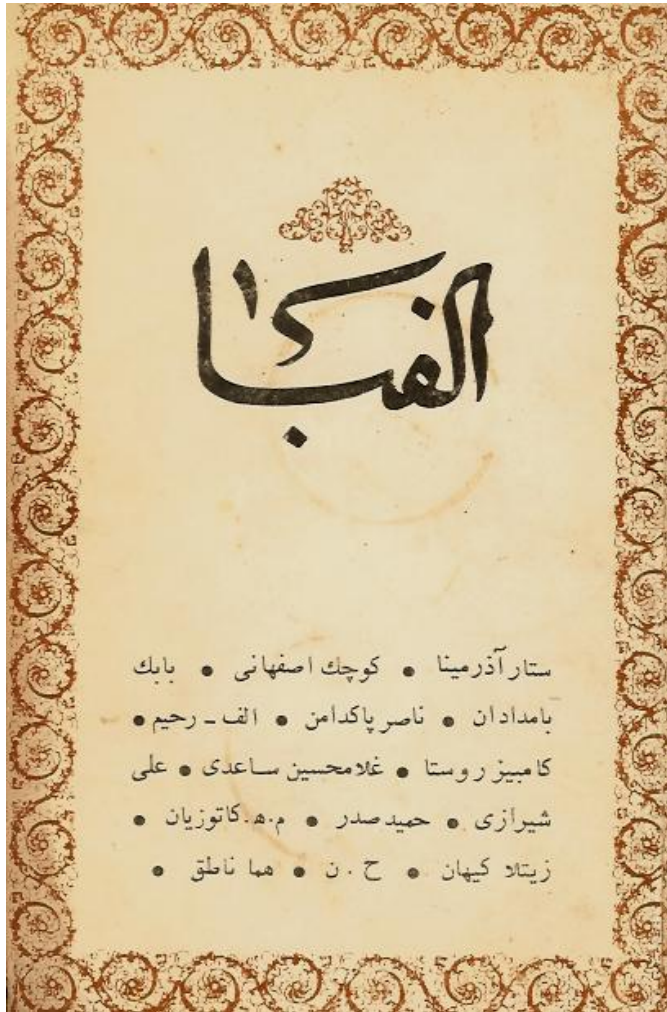 الفبا
ستار آذرمینا ● کوچك اصفهانی ● بابك
بامدادان ● ناصر پاکدامن ● الف ـ رحیم ●
کامبیز روستا ● غلامحسین ساعدی ● علی
شیرازی ● حمید صدر ● م.ه.کاتوزیان ●
زیتلا کیهان ● ح . ن ● هما ناطق ●